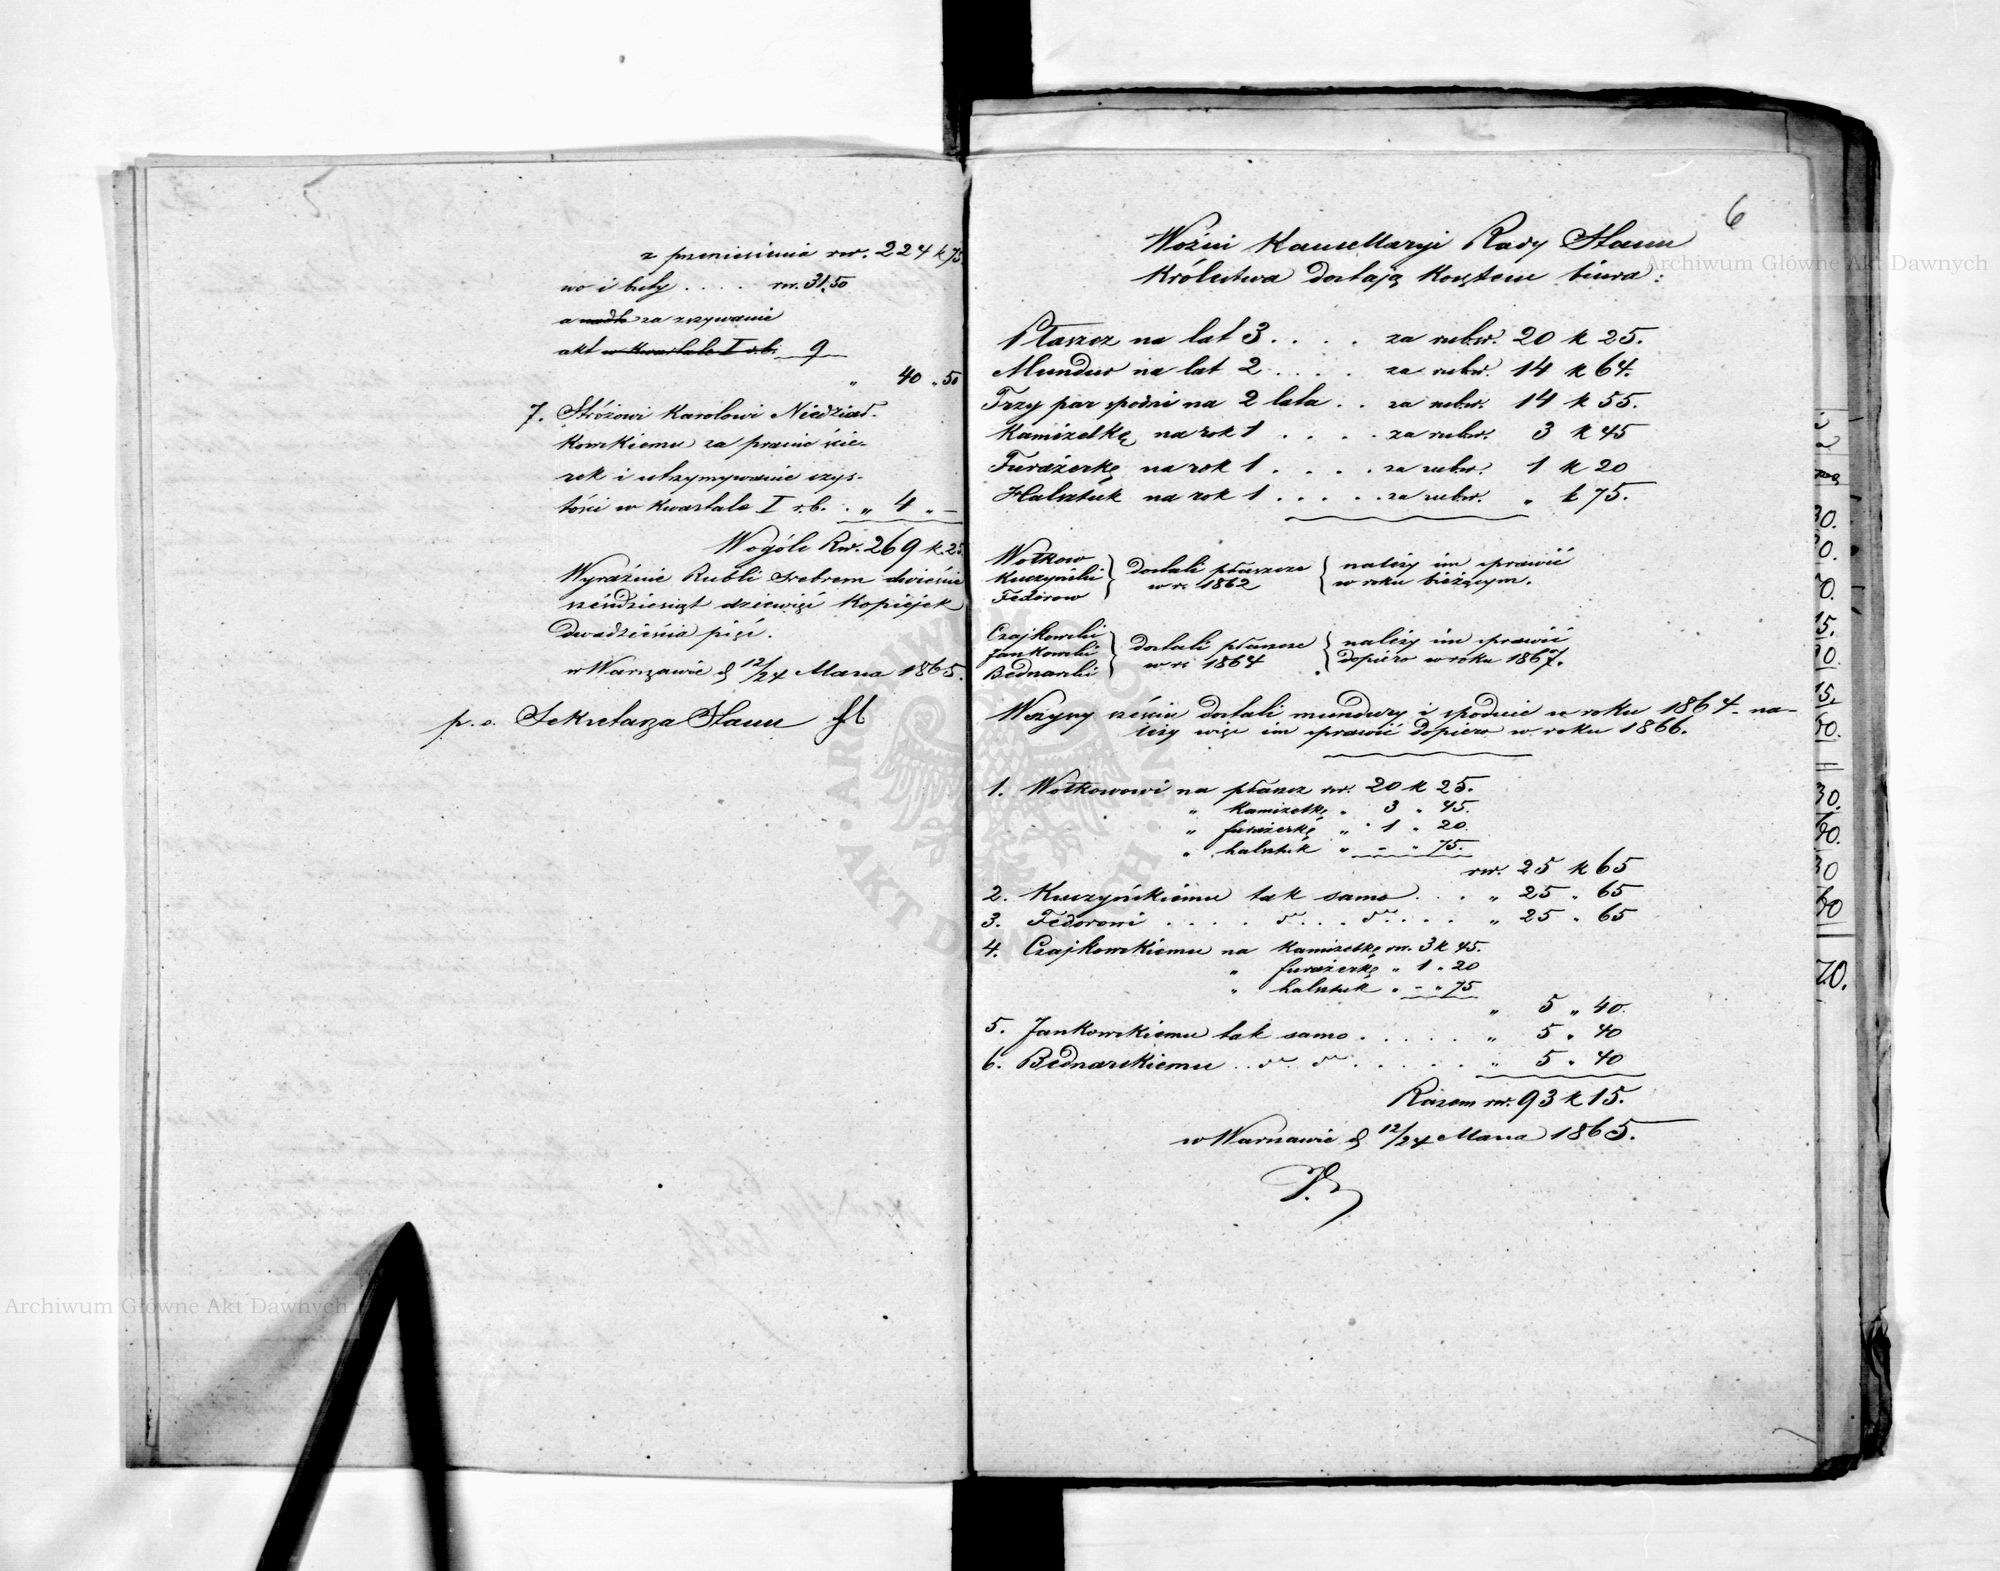 z przeniesienia rsr. 224 k 75.
no i buty . . . . rsr. 31.50
a nadto za zszywanie
akt w Kwartale I r.b. 9
" 40 " 50
7. Stróżowi Karolowi Niedział-
kowskiemu za pranie ście-
rek i utrzymywanie czys-
tości w Kwartale I r.b. . " 4 " —
Wogóle Rsr. 269 k. 25.
Wyraźnie Rubli srebrem dwieście
sześdziesiąt dziewięć Kopiejek
dwadzieścia pięć.
w Warszawie d 12/24 Marca 1865.
p. o. Sekretarza Stanu
6
Woźni Kancellaryi Rady Stanu
Królestwa dostają kosztem biura:
Płaszcz na lat 3 . . . . za rubsr. 20 k 25.
Mundur na lat 2 . . . . za rubsr. 14 k 64.
Trzy par spodni na 2 lata . . za rubsr. 14 k 55.
Kamizelkę na rok 1 . . . . za rubsr. 3 k 45
Furażerkę na rok 1 . . . . za rubsr. 1 k 20
Halsztuk na rok 1 . . . . . za rubsr. " k 75.
Wołkow
Kuczyński
Fedorow
} dostali płaszcze
w r. 1862
{ należy im sprawić
w roku bieżącym.
Czajkowski
Jankowski
Bednarski
} dostali płaszcze
w r. 1864
{ należy im sprawić
dopiero w roku 1867.
Wszyscy sześciu dostali mundury i spodnie w roku 1864 - na-
leży więc im sprawić dopiero w roku 1866.
1. Wołkowowi na płaszcz rsr. 20 k 25.
" kamizelkę " 3 " 45.
" furażerkę " 1 " 20.
" halsztuk " - " 75.
rsr. 25 k 65
2. Kuczyńskiemu tak samo . . . " 25 " 65
3. Fedorowi . . . . do . . . do . . . . " 25 " 65
4. Czajkowskiemu na kamizelkę rsr. 3 k 45.
" furażerkę " 1 " 20
" halsztuk " - " 75
" 5 " 40.
5. Jankowskiemu tak samo . . . . . " 5 " 40
6. Bednarskiemu . . do . do . . . . . " 5 " 40
Razem rsr. 93 k 15.
w Warszawie d 12/24 Marca 1865.
Archiwum Główne Akt Dawnych
Archiwum Główne Akt Dawnych